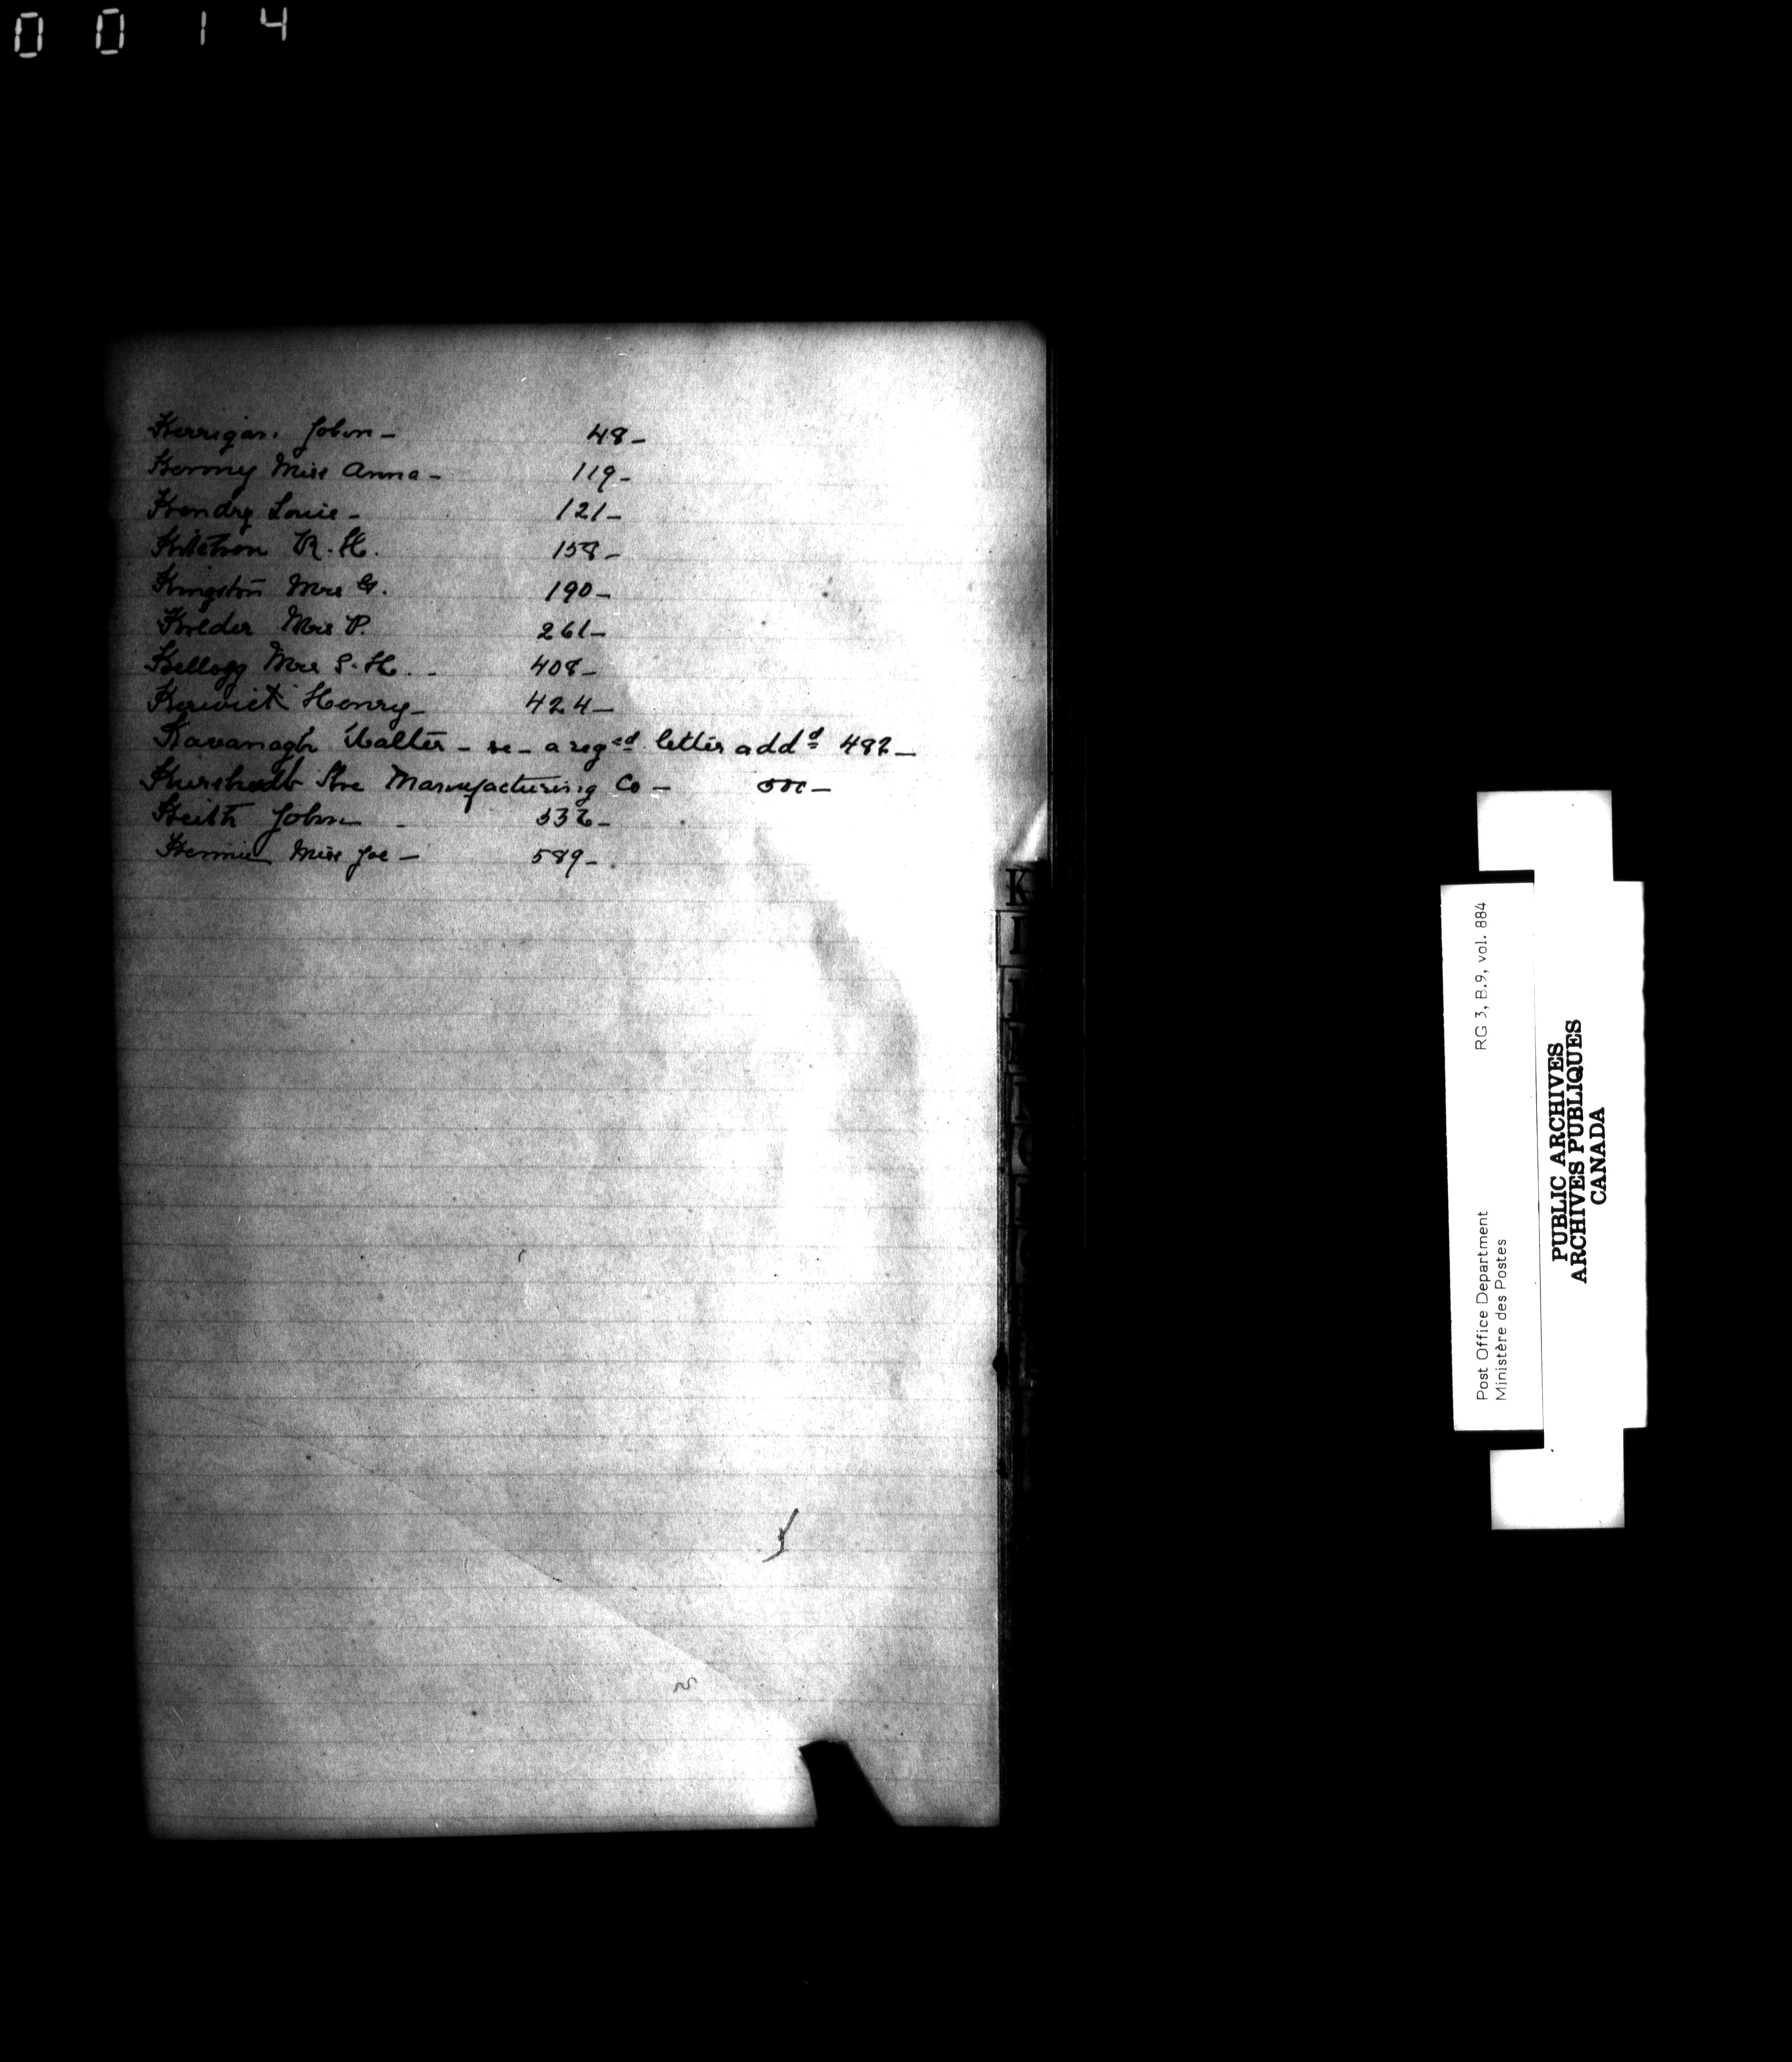 0014
Kerrigan John - 48 -
Kenny Miss Anna - 119 -
Kendry Louie - 121 -
R. H. 158 -
Kingston Mrs G. 190 -
Mrs P. 261 -
Kellogg Mrs S. H. - 408 -
Kerwick Henry - 424 -
Kavanagh Walter - re - a regd letter addd 482 -
Manufacturing Co -
Keith John - 532 -
Miss Joe - 589 -
K
Post Office Department RG 3, B.9, vol. 884
Ministère des Postes
PUBLIC ARCHIVES
ARCHIVES PUBLIQUES
CANADA